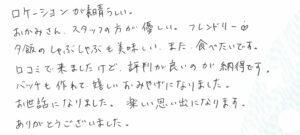 ロケーションが素晴らしい。
おかみさん、スタッフの方が優しい。フレンドリー☺
夕飯のしゃぶしゃぶも美味しい、また食べたいです。
口コミで来ましたけど、評判が良いのが納得です。
バッヂも作れて嬉しいおみやげになりました。
お世話になりました。楽しい思い出になります。
ありがとうございました。